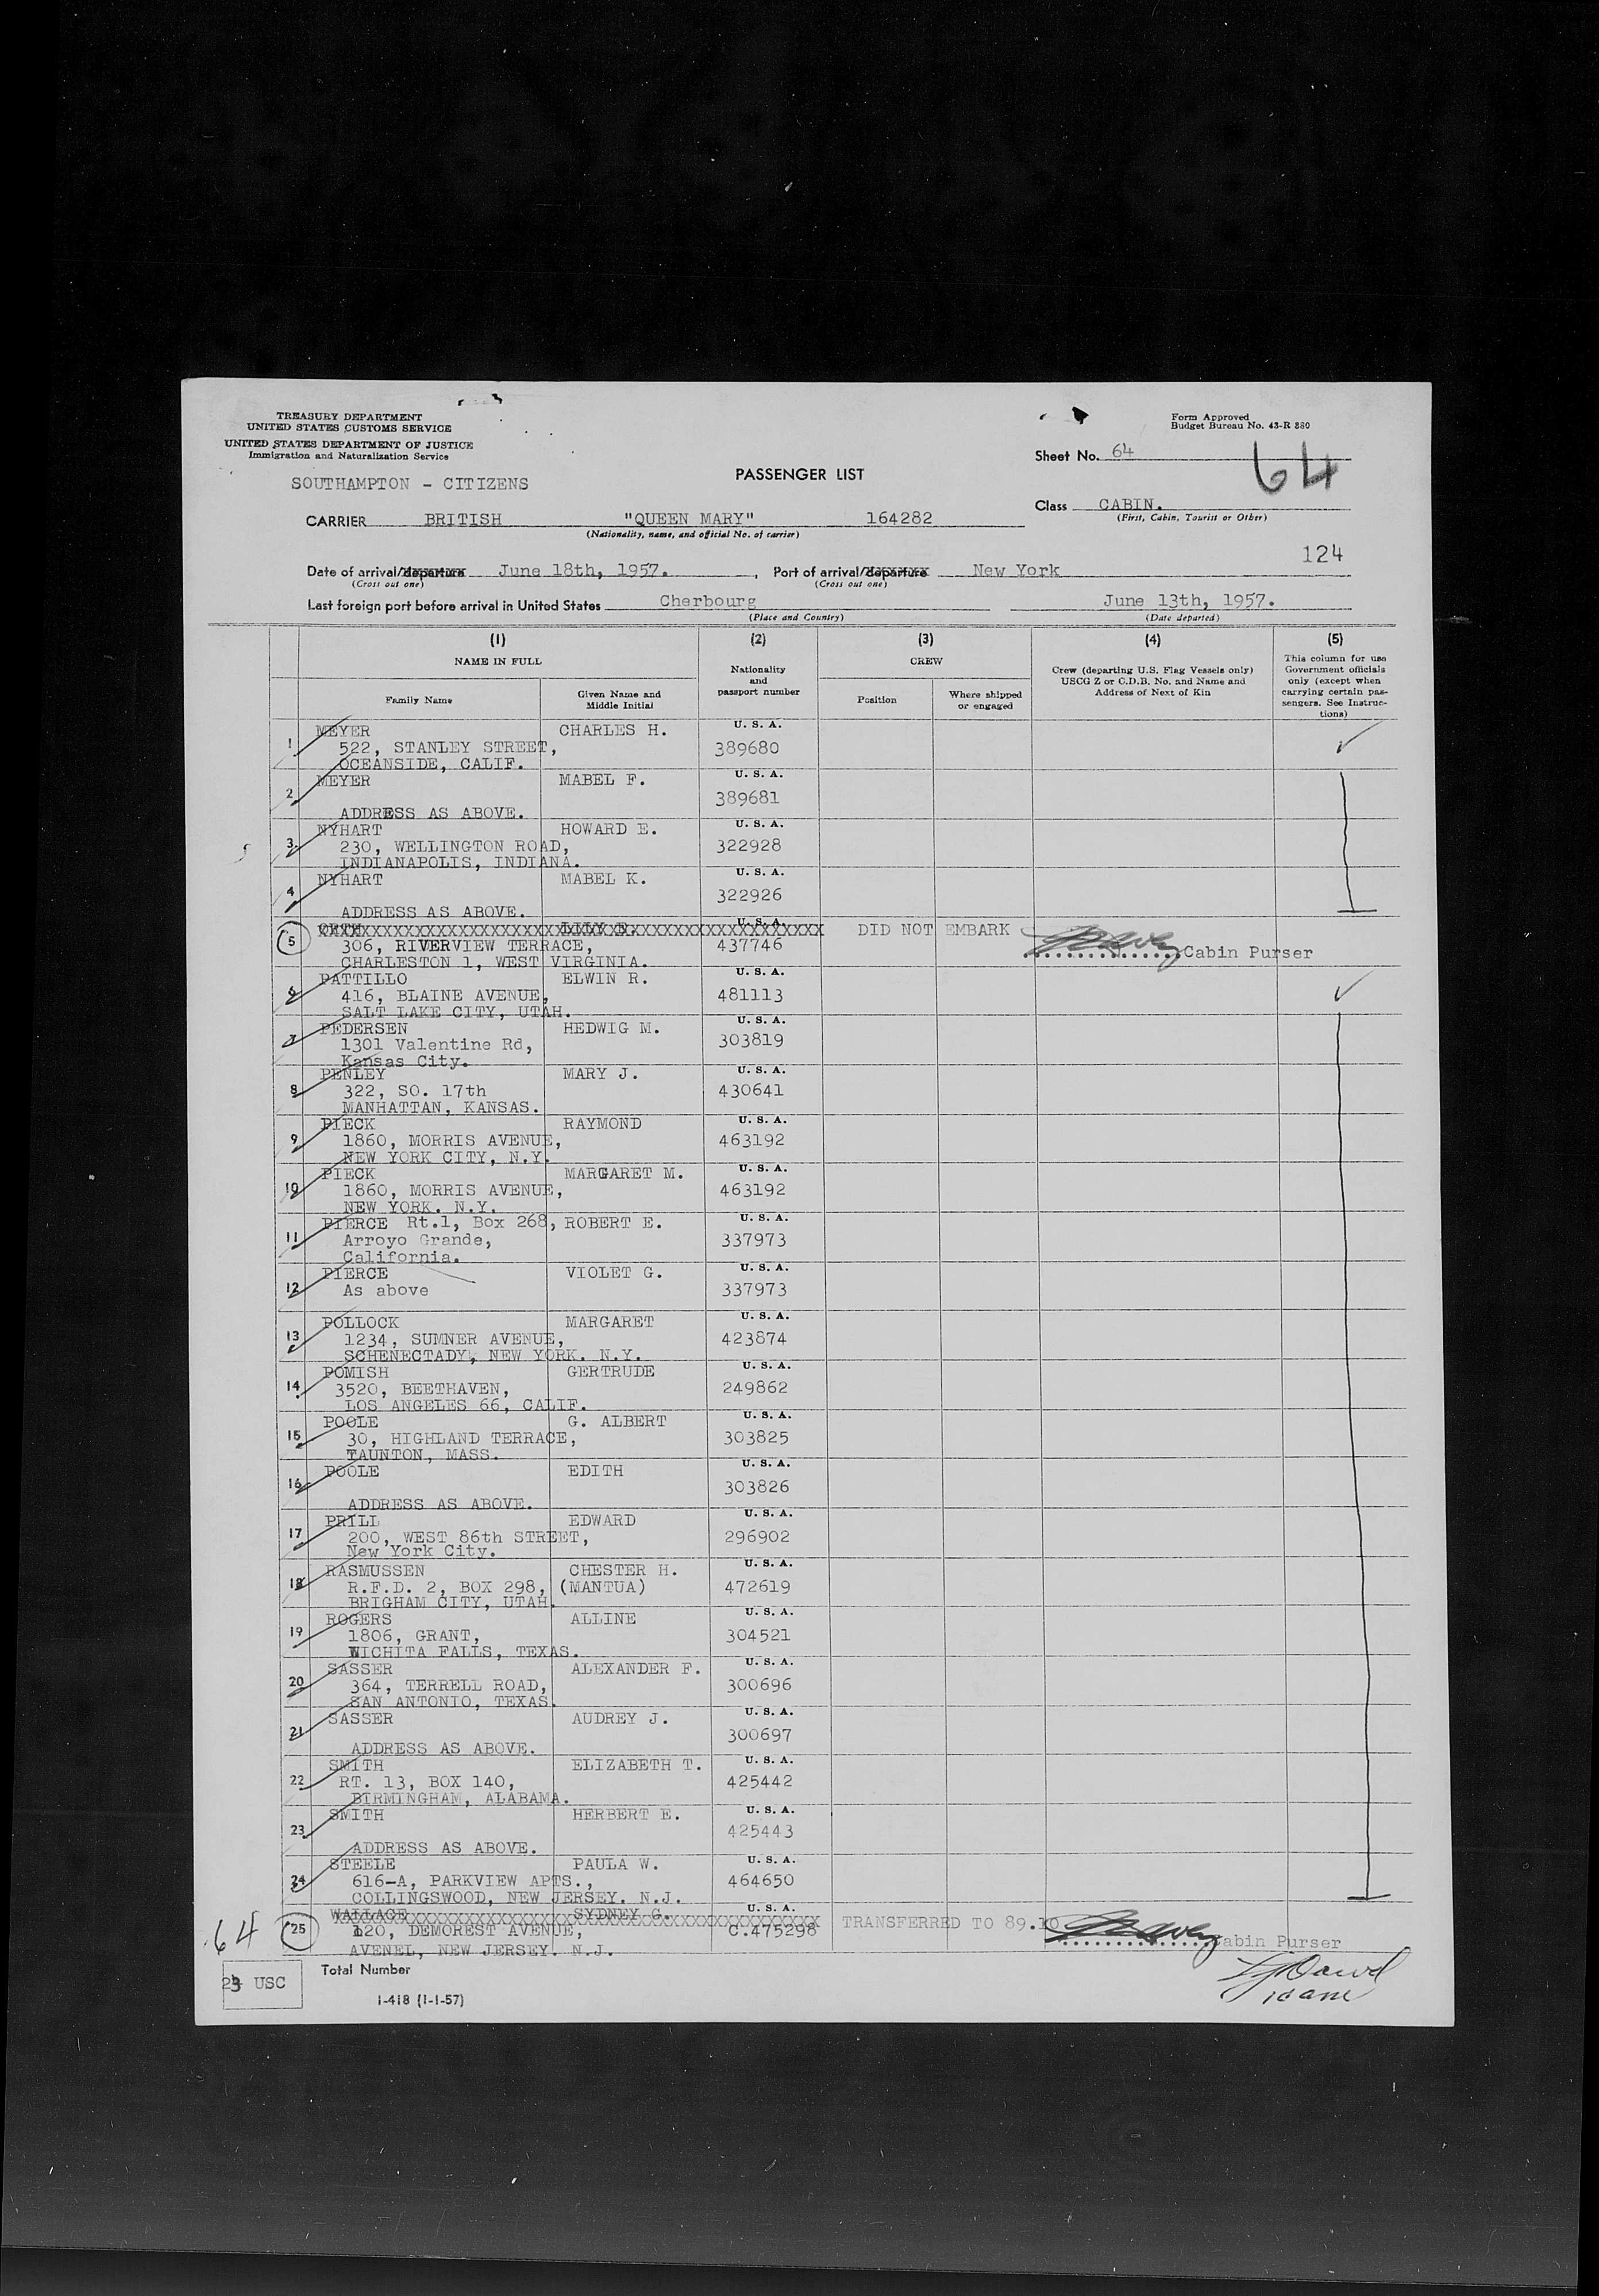 TREASURY DEPARTMENT
UNITED STATES CUSTOMS SERVICE
UNITED STATES DEPARTMENT OF JUSTICE
Immigration and Naturalization Service
Form Approved
Budget Bureau No. 43-R 380
Sheet No. 64
64
PASSENGER LIST
SOUTHAMPTON - CITIZENS
Class CABIN.
(First, Cabin, Tourist or Other)
CARRIER BRITISH "QUEEN MARY" 164282
(Nationality, name, and official No. of carrier)
124
Date of arrival/departure June 18th, 1957. , Port of arrival/departure New York
(Cross out one) (Cross out one)
Last foreign port before arrival in United States Cherbourg June 13th, 1957.
(Place and Country) (Date departed)
(1) (2) (3) (4) (5)
NAME IN FULL
Nationality and passport number
CREW
Crew (departing U.S. Flag Vessels only) USCG Z or C.D.B. No. and Name and Address of Next of Kin
This column for use Government officials only (except when carrying certain passengers. See Instructions)
Family Name Given Name and Middle Initial Position Where shipped or engaged
1 MEYER CHARLES H. U. S. A.
522, STANLEY STREET, 389680
OCEANSIDE, CALIF.
2 MEYER MABEL F. U. S. A.
389681
ADDRESS AS ABOVE.
3 NYHART HOWARD E. U. S. A.
230, WELLINGTON ROAD, 322928
INDIANAPOLIS, INDIANA.
4 NYHART MABEL K. U. S. A.
322926
ADDRESS AS ABOVE.
5 ORTH LILY E. U. S. A. DID NOT EMBARK
306, RIVERVIEW TERRACE, 437746 Cabin Purser
CHARLESTON 1, WEST VIRGINIA.
6 PATTILLO ELWIN R. U. S. A.
416, BLAINE AVENUE, 481113
SALT LAKE CITY, UTAH.
7 PEDERSEN HEDWIG M. U. S. A.
1301 Valentine Rd, 303819
Kansas City.
8 PENLEY MARY J. U. S. A.
322, SO. 17th 430641
MANHATTAN, KANSAS.
9 PIECK RAYMOND U. S. A.
1860, MORRIS AVENUE, 463192
NEW YORK CITY, N.Y.
10 PIECK MARGARET M. U. S. A.
1860, MORRIS AVENUE, 463192
NEW YORK. N.Y.
11 PIERCE Rt.1, Box 268, ROBERT E. U. S. A.
Arroyo Grande, 337973
California.
12 PIERCE VIOLET G. U. S. A.
As above 337973
13 POLLOCK MARGARET U. S. A.
1234, SUMNER AVENUE, 423874
SCHENECTADY, NEW YORK. N.Y.
14 POMISH GERTRUDE U. S. A.
3520, BEETHAVEN, 249862
LOS ANGELES 66, CALIF.
15 POOLE G. ALBERT U. S. A.
30, HIGHLAND TERRACE, 303825
TAUNTON, MASS.
16 POOLE EDITH U. S. A.
303826
ADDRESS AS ABOVE.
17 PRILL EDWARD U. S. A.
200, WEST 86th STREET, 296902
New York City.
18 RASMUSSEN CHESTER H. U. S. A.
R.F.D. 2, BOX 298, (MANTUA) 472619
BRIGHAM CITY, UTAH.
19 ROGERS ALLINE U. S. A.
1806, GRANT, 304521
WICHITA FALLS, TEXAS.
20 SASSER ALEXANDER F. U. S. A.
364, TERRELL ROAD, 300696
SAN ANTONIO, TEXAS.
21 SASSER AUDREY J. U. S. A.
300697
ADDRESS AS ABOVE.
22 SMITH ELIZABETH T. U. S. A.
RT. 13, BOX 140, 425442
BIRMINGHAM, ALABAMA.
23 SMITH HERBERT E. U. S. A.
425443
ADDRESS AS ABOVE.
24 STEELE PAULA W. U. S. A.
616-A, PARKVIEW APTS., 464650
COLLINGSWOOD, NEW JERSEY. N.J.
25 WALLACE SYDNEY G. U. S. A. TRANSFERRED TO 89.10
120, DEMOREST AVENUE, C.475298 Cabin Purser
AVENEL, NEW JERSEY. N.J.
64
23 USC Total Number
I-418 (1-1-57)